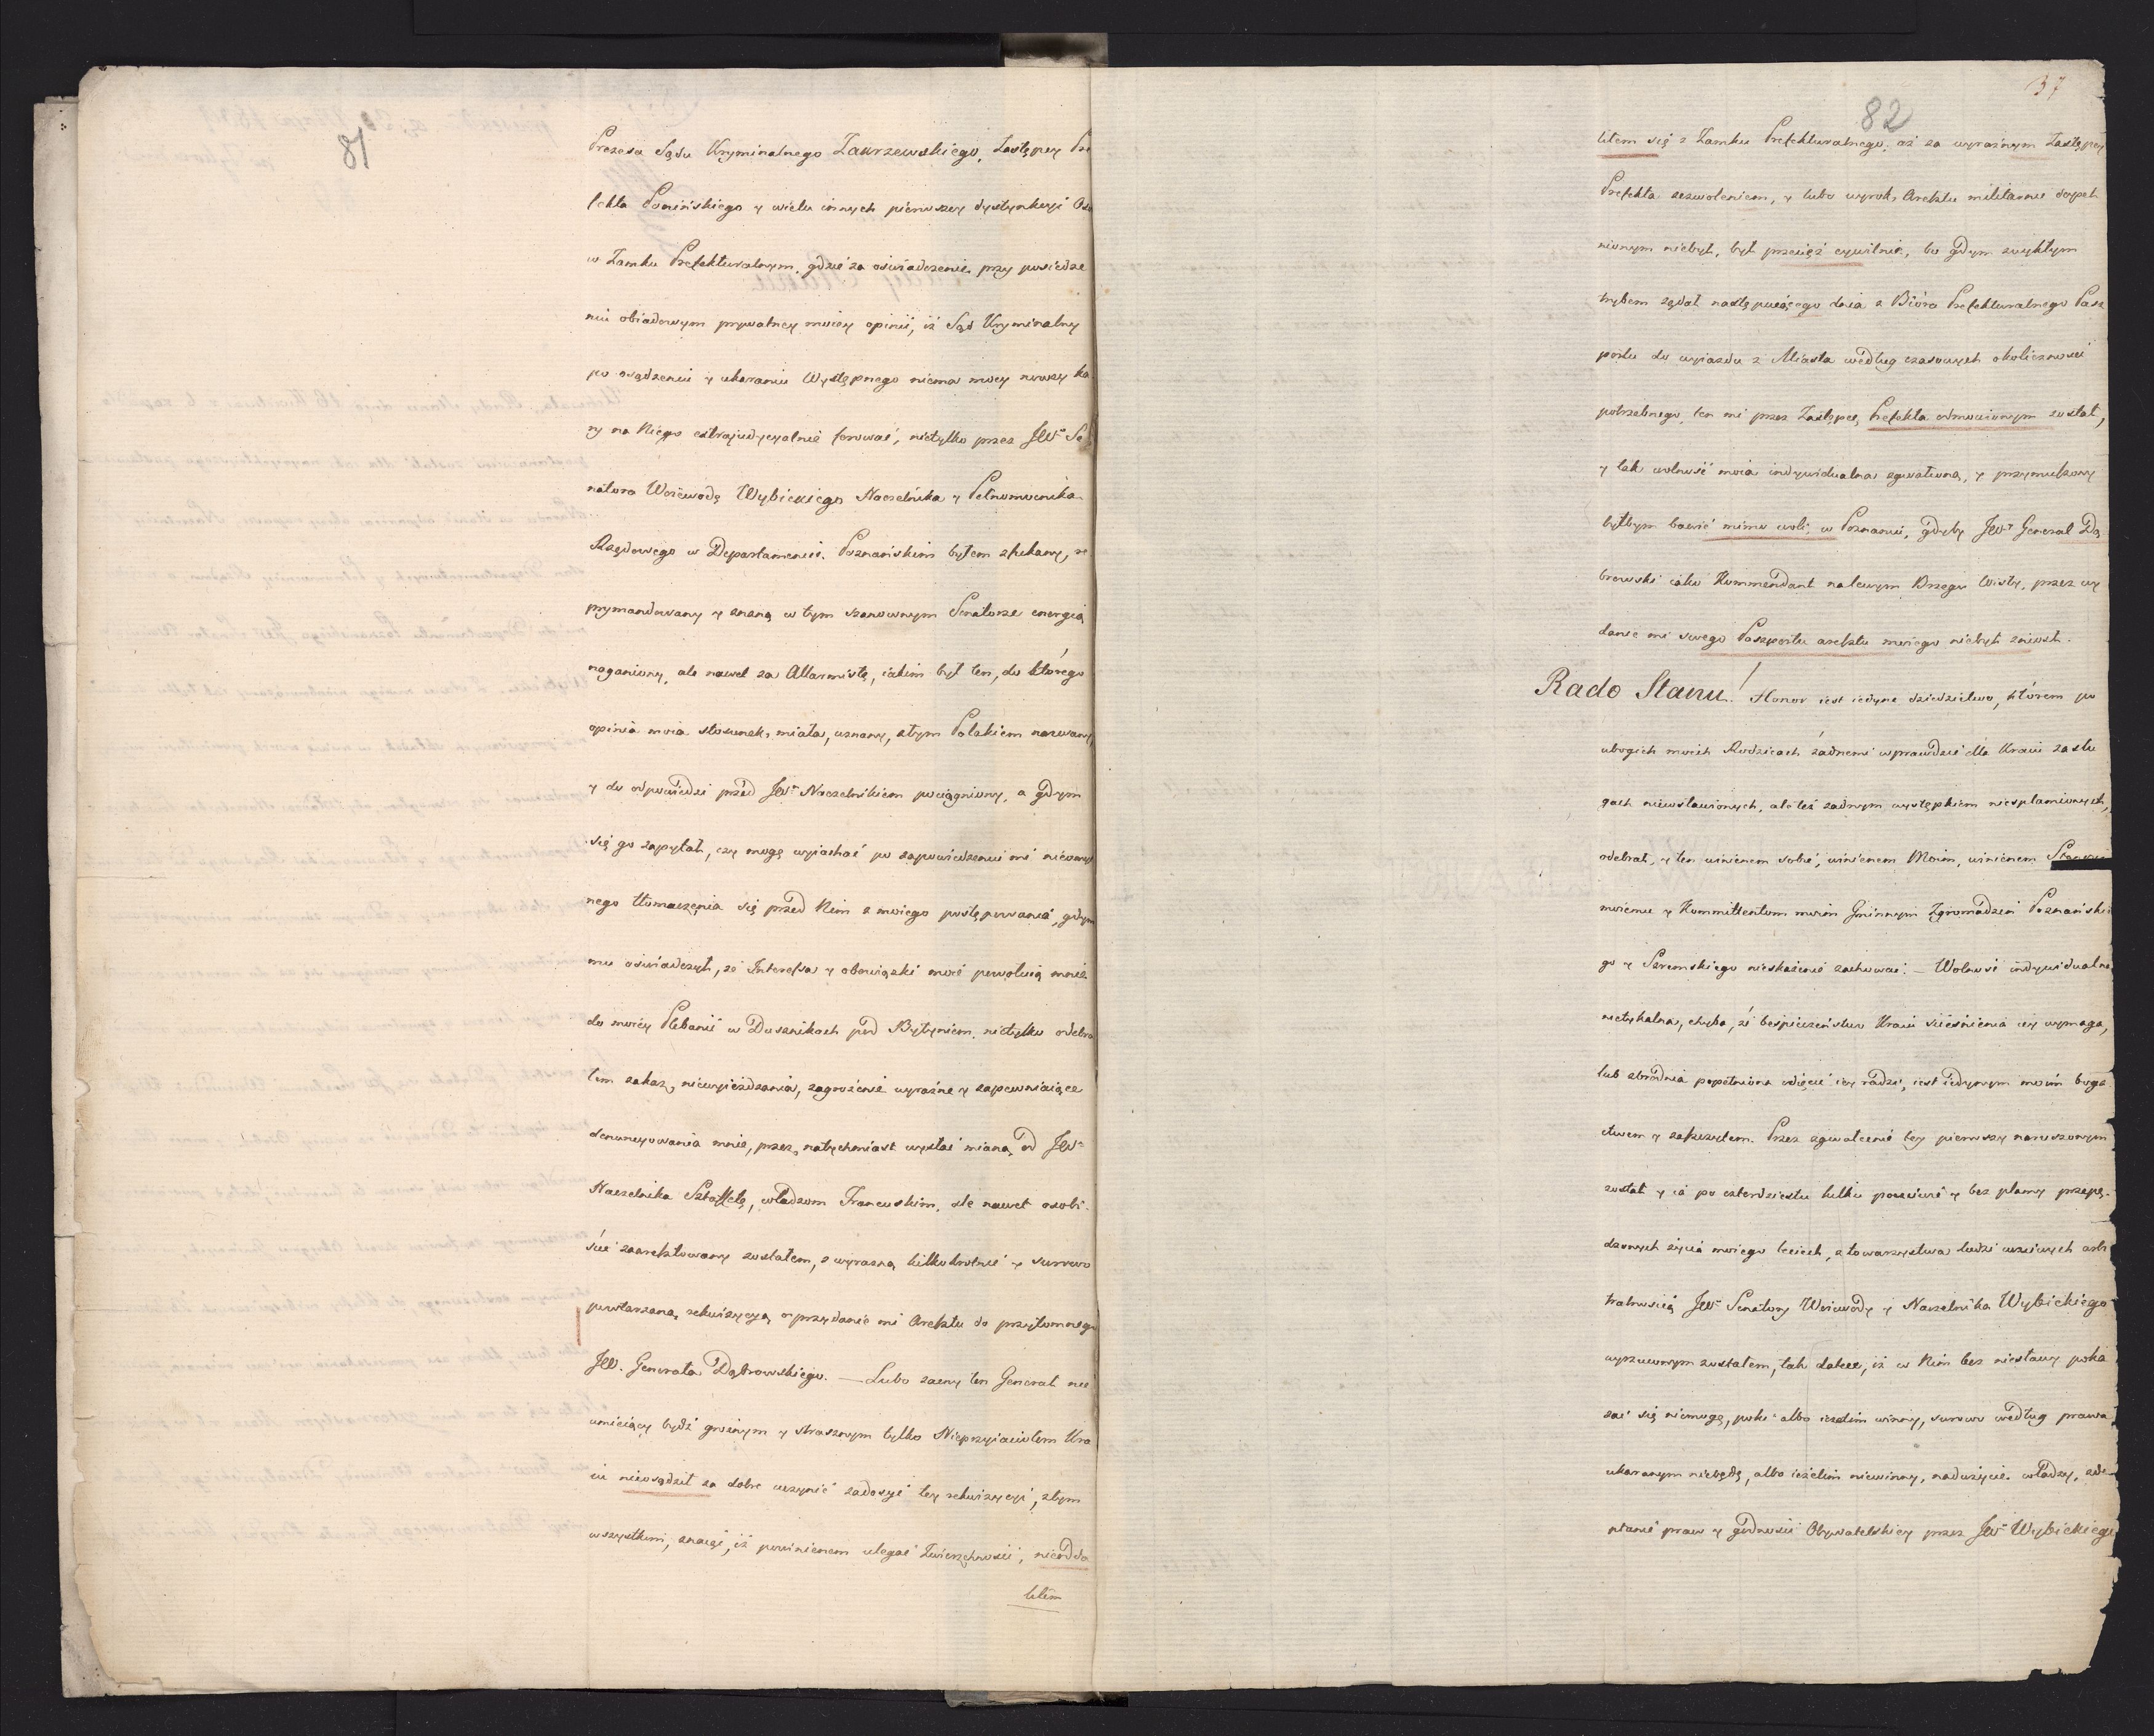 81
Prezesa Sądu Kryminalnego Zakrzewskiego, Zastępcy Pre
fekta Ponińskiego y wielu innych pierwszey dystynkcyi Osó
w Zamku Prefekturalnym, gdzie za oświadczenie przy posiedze
niu obiadowym prywatney moiey opinii, iż Sąd Kryminalny
po osądzeniu y ukaraniu Występnego niema mocy nowey ka
ry na Niego extrajudycyalnie ferować, nietylko przez JW° Se
natora Woiewodę Wybickiego Naczelnika y Pełnomocnika
Rządowego w Departamencie Poznańskim byłem sfukany, re
prymandowany y znaną w tym szanownym Senatorze energią
naganiony, ale nawet za Allarmistę, iakim był ten, do którego
opinia moia stosunek miała, uznany, złym Polakiem nazwany,
y do odpowiedzi przed JW° Naczelnikiem pociągniony, a gdym
się go zapytał, czy mogę wyiachać po zapowiedzeniu mi
nego tłomaczenia się przed Nim z moiego postępowania, gdym
mu oświadczył, że Interessa y obowiązki moie powołuią mnie
do moiey Plebanii w Dusznikach pod Bytyniem, nietylko odebra
łem zakaz niewyieżdzania, zagrożenie wyraźne y zapewniaiące
denuncyowania mnie, przez natychmiast wysłać mianą od JW°
Naczelnika Sztaffetę, władzom Francuskim, ale nawet osobi-
ście zaaresztowany zostałem, z wyrazną kilkokrotnie y surowo
powtarzaną rekwizycyą o przydanie mi Aresztu do przytomnego
JW. Generała Dąbrowskiego. — Lubo zacny ten Generał nie
umieiący bydź groźnym y strasznym tylko Nieprzyiaciołom Kra
iu nieosądził za dobre uczynić zadosyć tey rekwizycyi, z tym
wszystkim, znaiąc, iż powinienem ulegać Zwierzchności, nieodda
liłem
37
82
liłem się z Zamku Prefekturalnego, aż za wyraźnym Zastępcy
Prefekta zezwoleniem, y lubo wyrok Aresztu militarnie dopeł
nionym niebył, był przecięż cywilnie, bo gdym zwykłym
trybem żądał następuiącego dnia z Bióra Prefekturalnego Pasz
portu do wyiazdu z Miasta według czasowych okoliczności
potrzebnego, ten mi przez Zastępcę Prefekta odmowionym został,
y tak wolność moia indywidualna zgwałcona, y przymuszony
byłbym bawić mimo woli w Poznaniu, gdyby JW° Generał Dą
browski iako Kommendant na lewym Brzegu Wisły, przez wy
danie mi swego Paszportu aresztu moiego niebył zniósł.
Rado Stanu! Honor iest iedyne dziedzictwo, którem po
ubogich moich Rodzicach żadnemi wprawdzie dla Kraiu zasłu
gach niewsławionych, ale też żadnym występkiem niesplamionych,
odebrał, y ten winienem sobie, winienem Moim, winienem Stanowi
moiemu y Kommittentom moim Gminnym Zgromadzeń Poznańskie
go y Szremskiego nieskażenie zachować. — Wolność indywidualna
nietykalna, chyba, że bespieczeństwo Kraiu ścieśnienia iey wymaga,
lub zbrodnia popełniona odięcie iey radzi, iest iedynym moim boga-
ctwem y zaszczytem. Przez zgwałcenie tey pierwszy naruszonym
został y ia po czterdziestu kilku poczciwie y bez plamy przepę-
dzonych życia moiego leciech, z towarzystwa ludzi uczciwych arbi
tralnością JW° Senatora Woiewody y Naczelnika Wybickiego
wyzuwnym zostałem, tak dalece, iż w Nim bez niesławy poka
zać się niemogę, poki albo iestlim winny, surowo według prawa
ukaranym niebędę, albo ieżelim niewinny, nadużycie władzy, zde-
ptanie praw y godności Obywatelskiey przez JW° Wybickiego